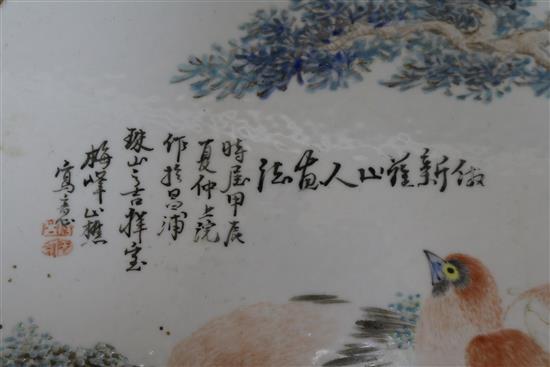 倣新羅山人畫法
時屆甲辰
夏仲上浣
作於昌浦
珠山之吉祥室
梅峰山樵
寫意